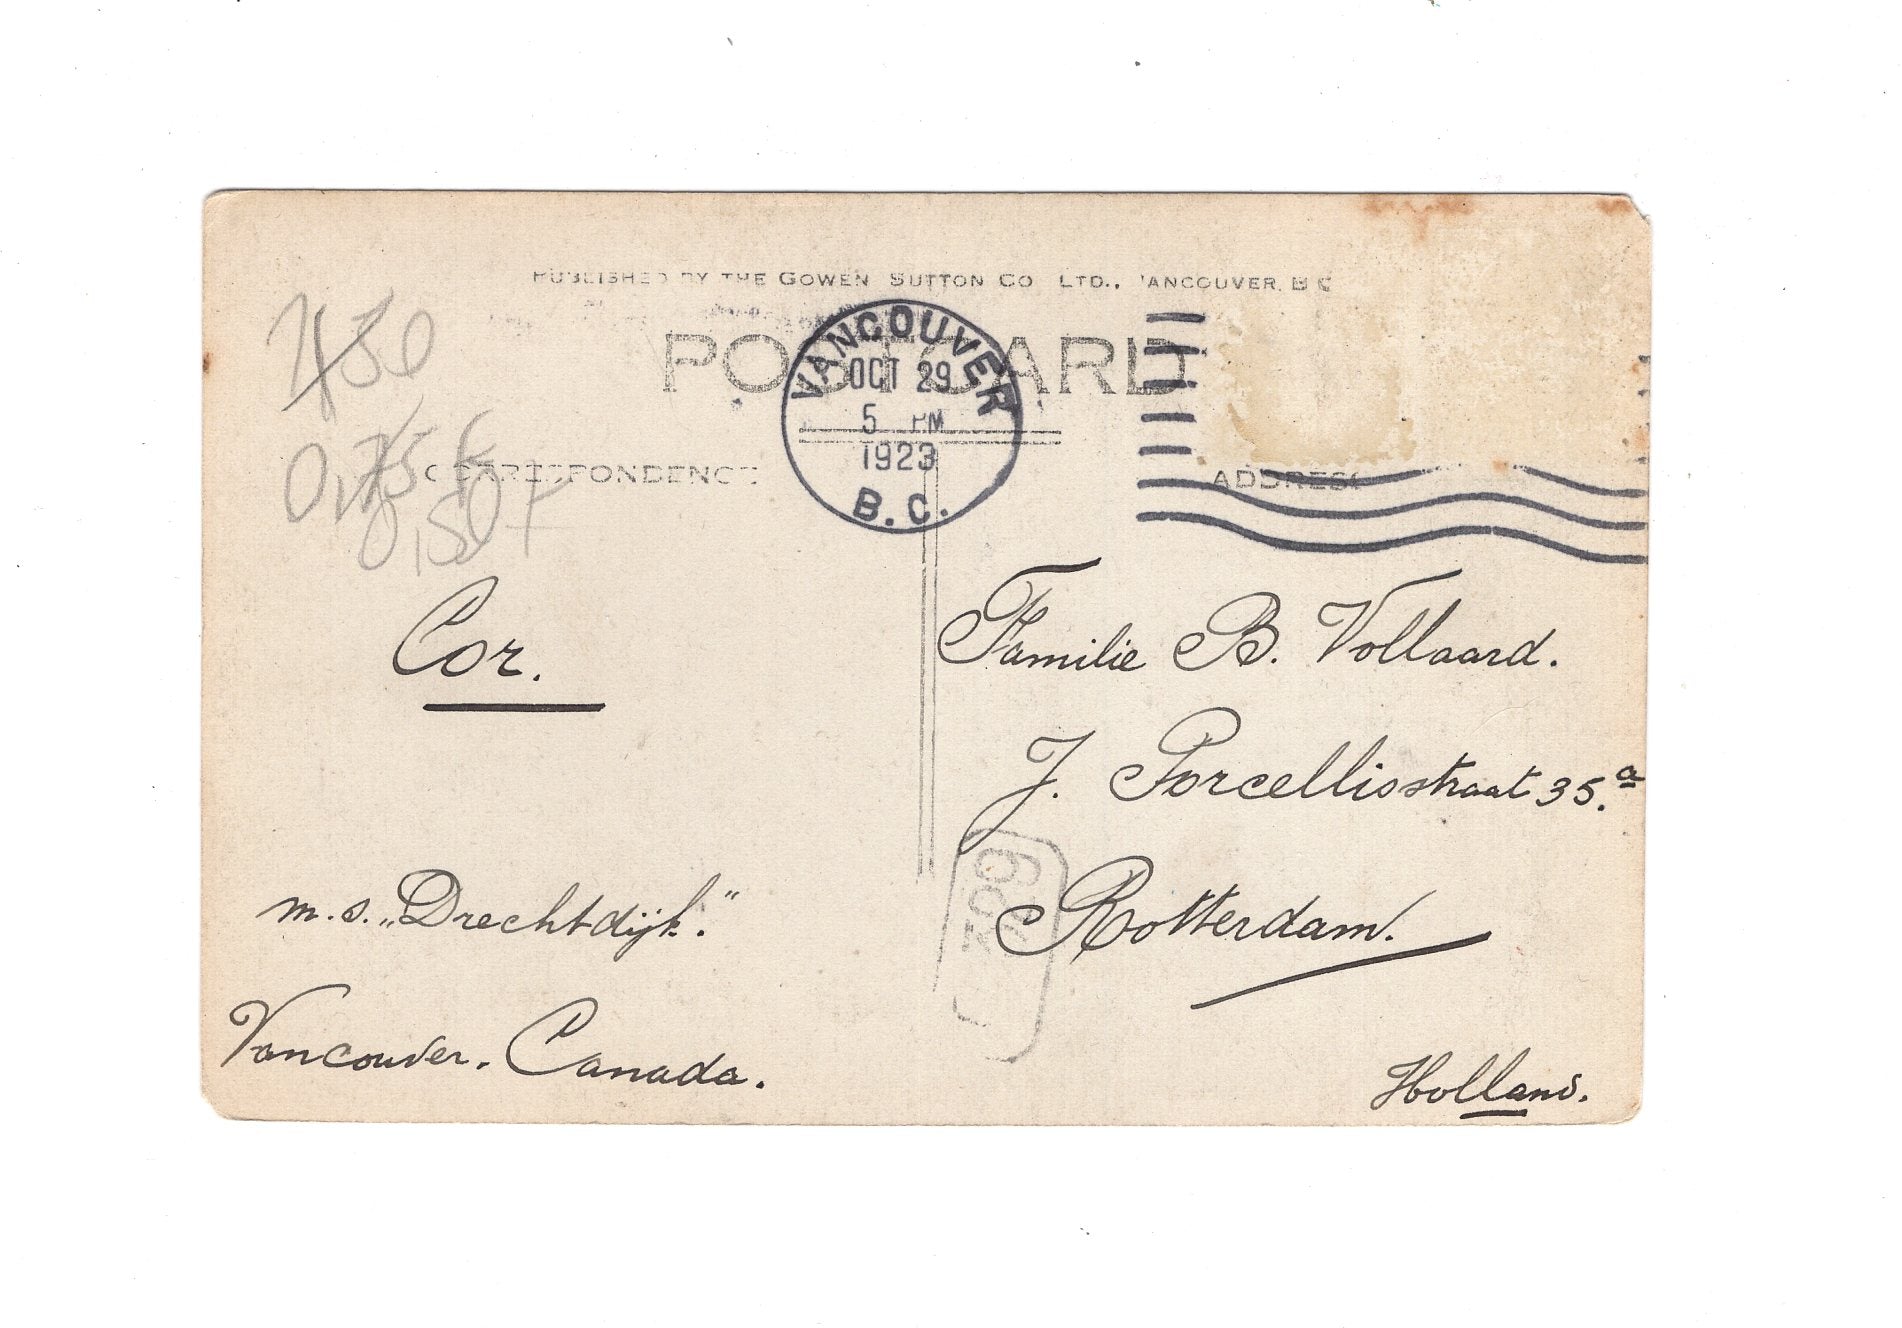 PUBLISHED BY THE GOWEN SUTTON CO LTD., VANCOUVER, B C
POST CARD
VANCOUVER
OCT 29
5 PM
1923
B.C.
CORRESPONDENCE
ADDRESS
0,75
0,50
Cor.
m.s. „Drechtdijk."
Vancouver. Canada.
Familie B. Vollaard.
J. Porcellisstraat 35.a
Rotterdam.
Holland.